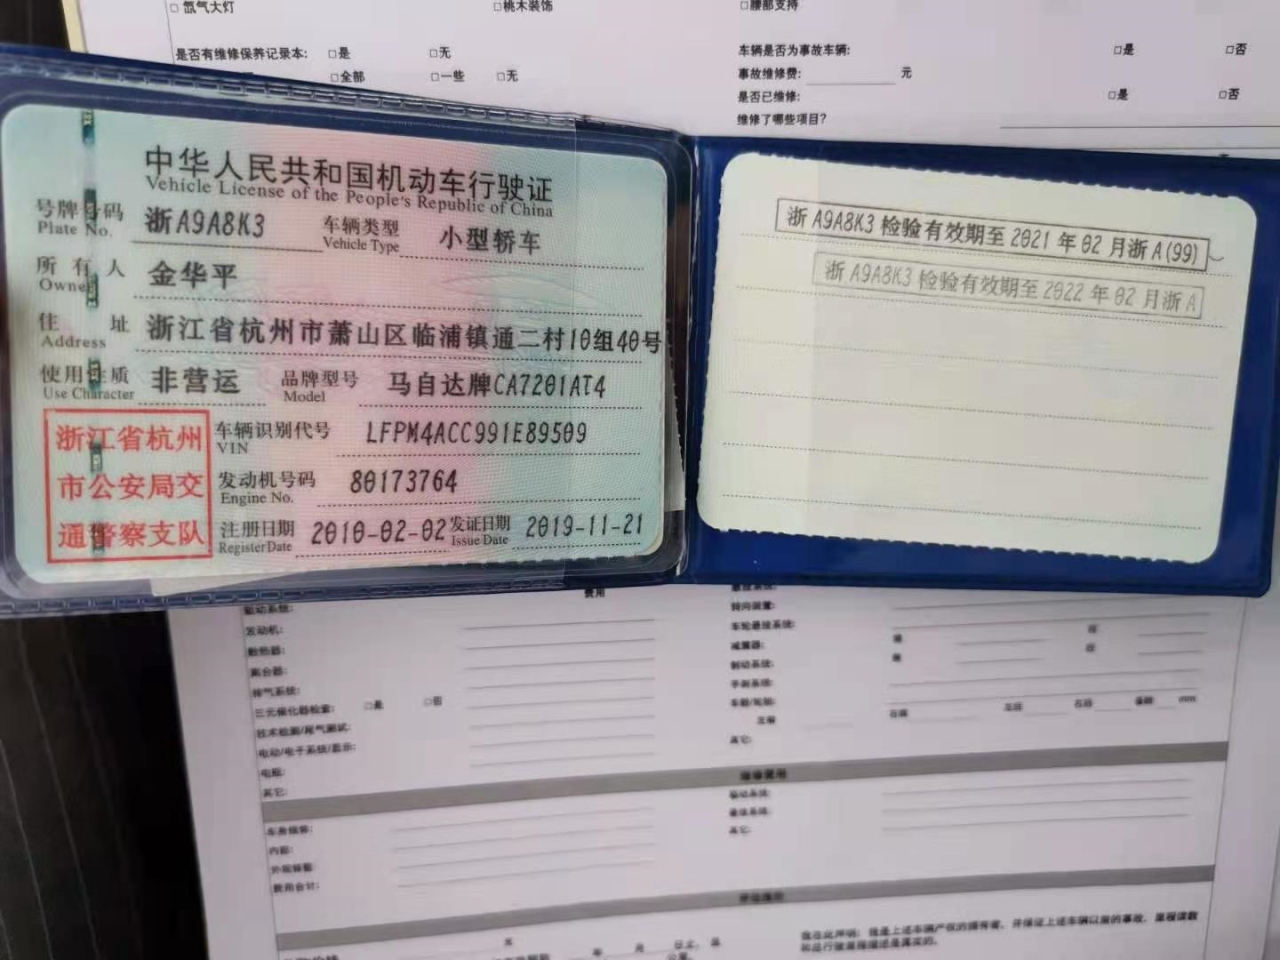 □ 氙气大灯 □桃木装饰 □腰部支持
是否有维修保养记录本: □是 □无 车辆是否为事故车辆: □是 □否
□全部 □一些 □无 事故维修费: 元
是否已维修: □是 □否
维修了哪些项目?
中华人民共和国机动车行驶证
Vehicle License of the People's Republic of China
号牌号码 浙A9A8K3 车辆类型 小型轿车
Plate No. Vehicle Type
所有人 金华平
Owner
住址 浙江省杭州市萧山区临浦镇通二村10组40号
Address
使用性质 非营运 品牌型号 马自达牌CA7201AT4
Use Character Model
浙江省杭州
市公安局交
通警察支队
车辆识别代号 LFPM4ACC991E89509
VIN
发动机号码 80173764
Engine No.
注册日期 2010-02-02 发证日期 2019-11-21
Register Date Issue Date
浙A9A8K3检验有效期至2021年02月浙A(99)
浙A9A8K3检验有效期至2022年02月浙A
费用
驱动系统: 转向装置:
发动机: 车轮悬挂系统:
散热器: 减震器:
离合器: 制动系统:
排气系统: 手刹系统:
三元催化器检索: □是 □否 车胎/轮胎:
技术检测/尾气测试:
电动/电子系统/显示: 其它:
电瓶:
其它:
维修费用
车身维修: 驱动系统:
内部:
其它:
费用合计:
年 月
公里。
我在此声明: 我是上述车辆产权的拥有者, 并保证上述车辆以前的事故, 里程读数
和运行状况描述是真实的。